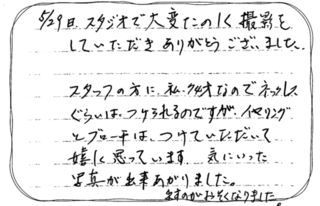 5/29日スタジオで大変たのしく撮影を
していただきありがとうございました。
スタッフの方に、私、なのでネックレス
ぐらいは、つけられるのですが、イヤリング
とブローチは、つけていただいて
嬉しく思っています 気にいった
写真が出来あがりました。
ますのがおそくなりました